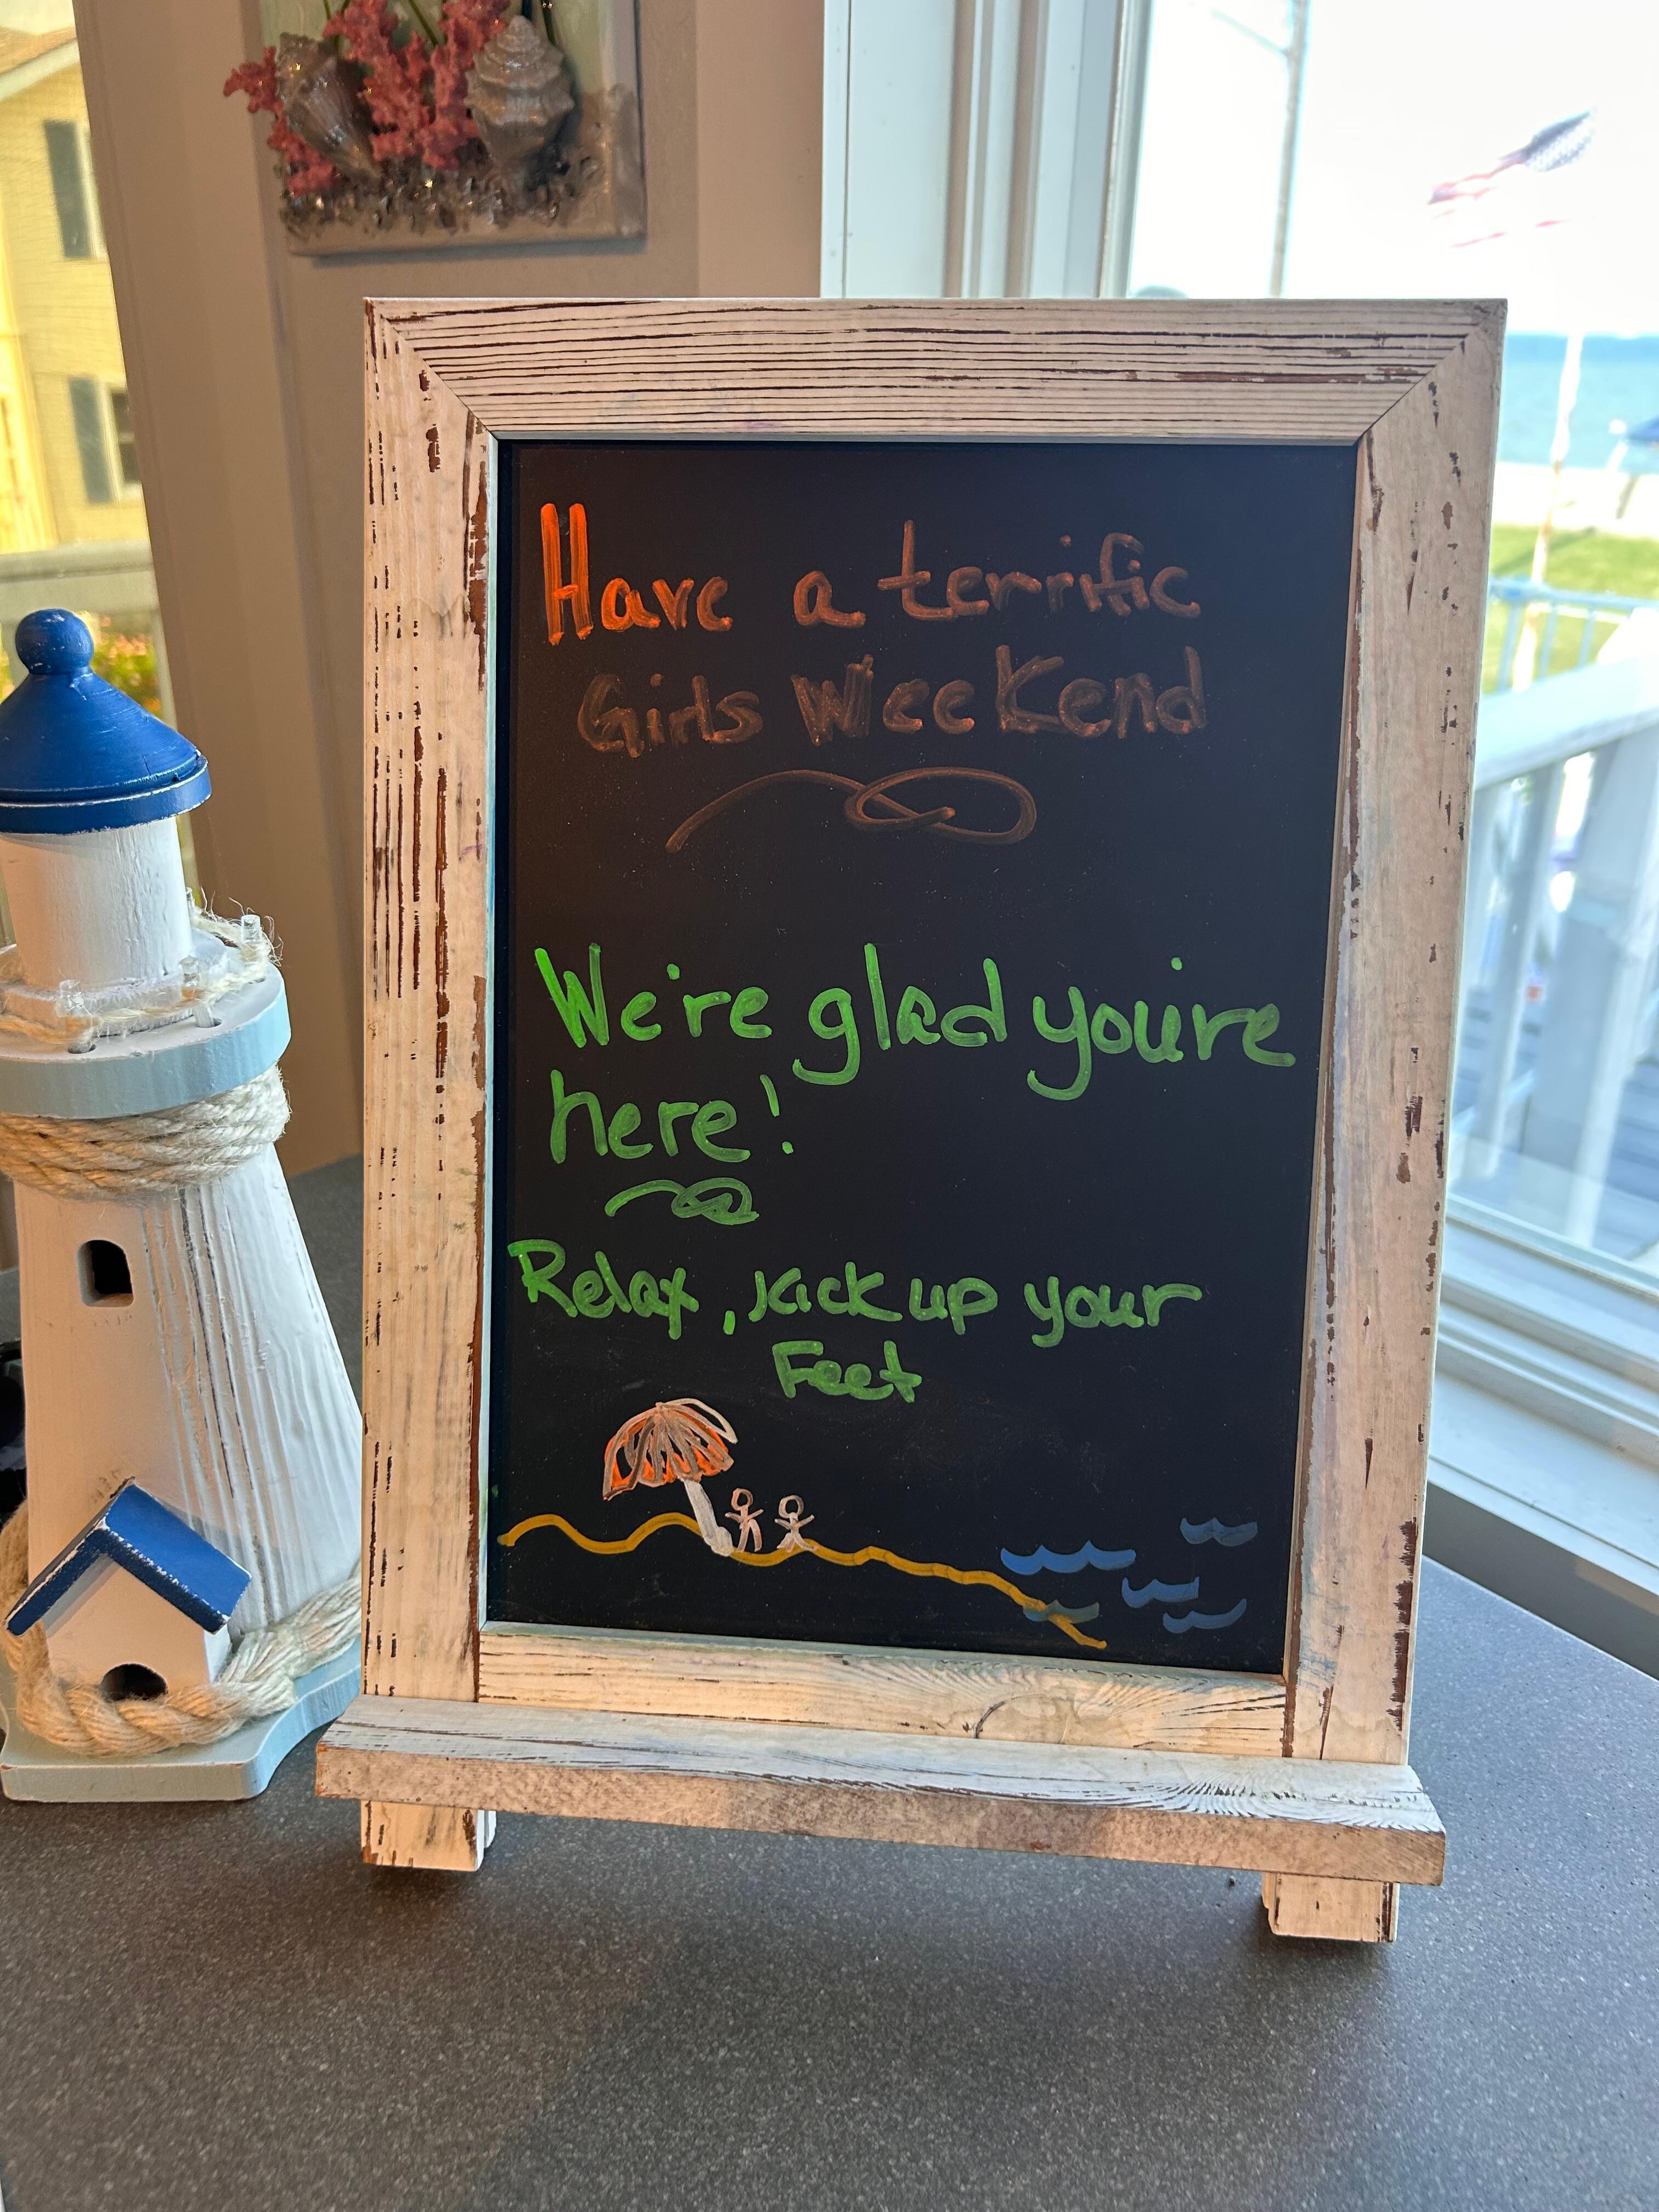 Have a terrific
Girls Weekend
We're glad you're
here!
Relax, kick up your
Feet